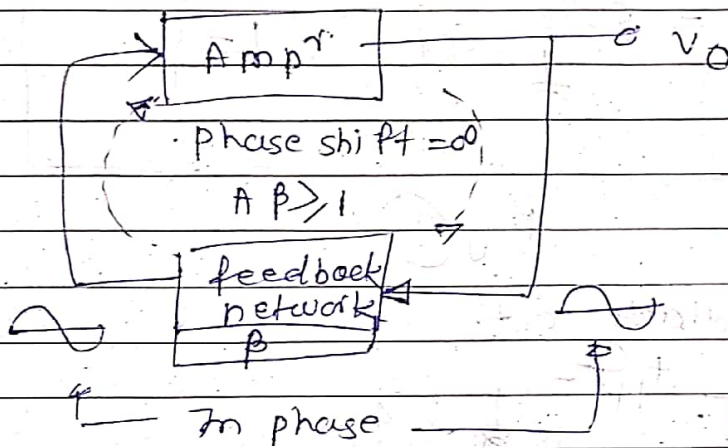 Ampr. Vo
Phase shift = 0°
A β ≥ 1
feedback
network
β
In phase